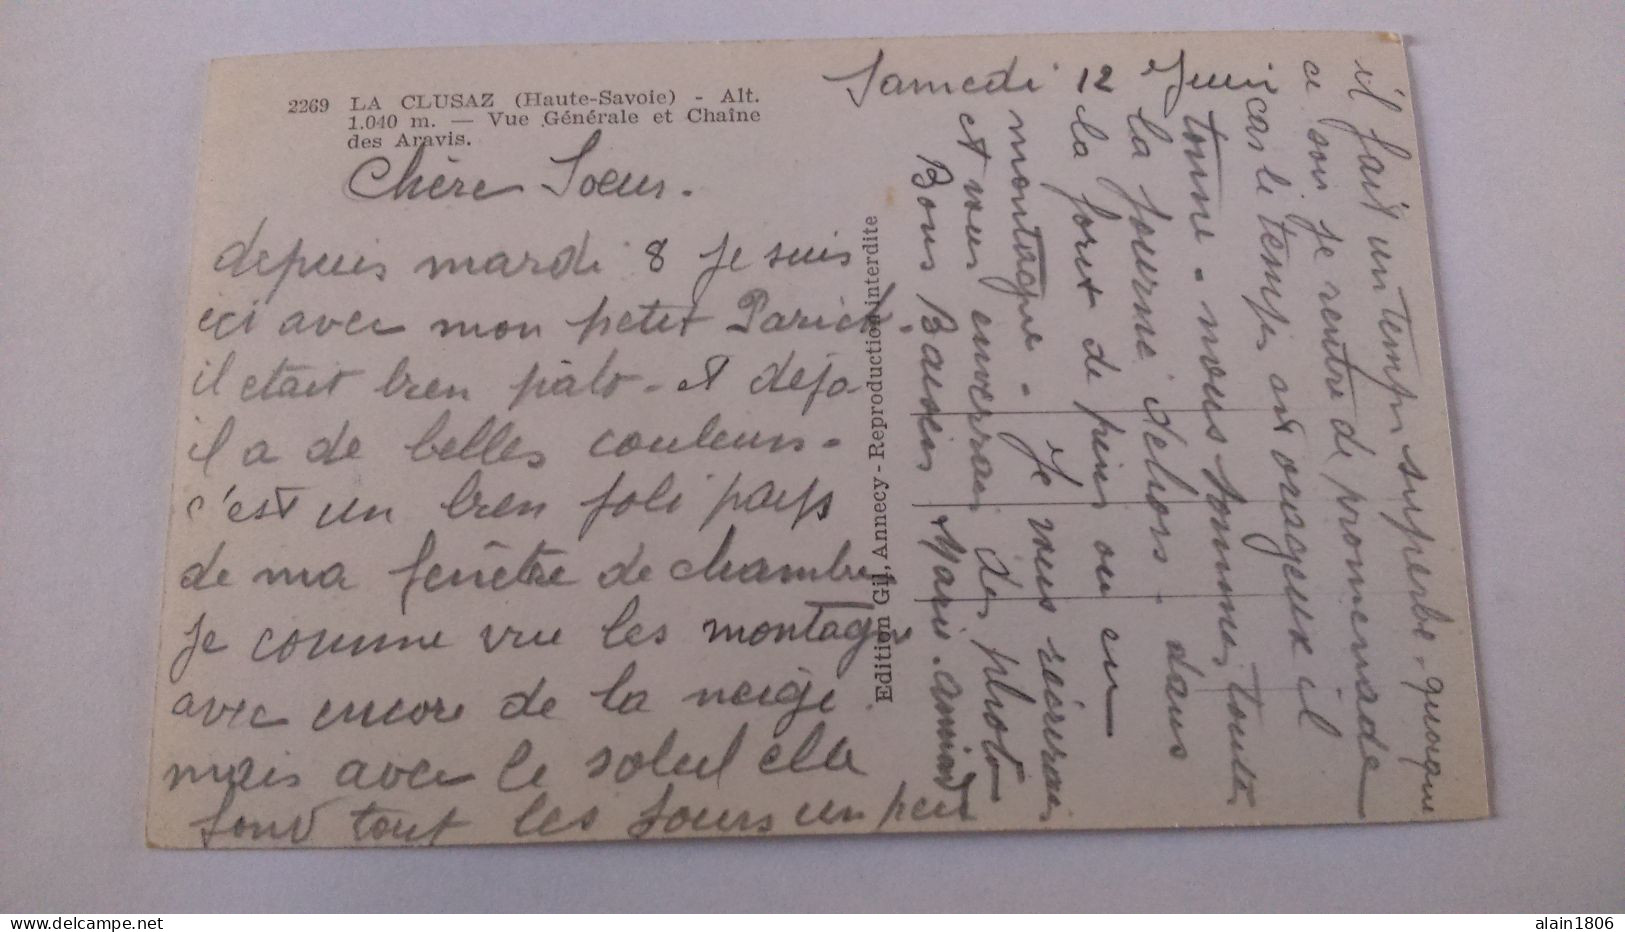 2269 LA CLUSAZ (Haute-Savoie) - Alt.
1.040 m. — Vue Générale et Chaîne
des Aravis.
Chère Soeur.
depuis mardi 8 je suis
ici avec mon petit Parick.
il était bien pâlo - et deja
il a de belles couleurs -
c'est un bien joli pays
de ma fenêtre de chambre
je comme vue les montagne
avec encore de la neige
mais avec le soleil ela
fond tout les jours un peu
Edition Gil, Annecy - Reproduction interdite
Samedi 12 Juin
il fait un temps superbe - quoique
ce soir je rentre de promenade
car le temps est orageux il
tonne - nous sommes toute
la journe dehors - dans
la foret de pins ou en
montagne - Je vous récrirai
et vous enverrai des photo
Bons Baisers Marie.
www.delcampe.net
alain1806